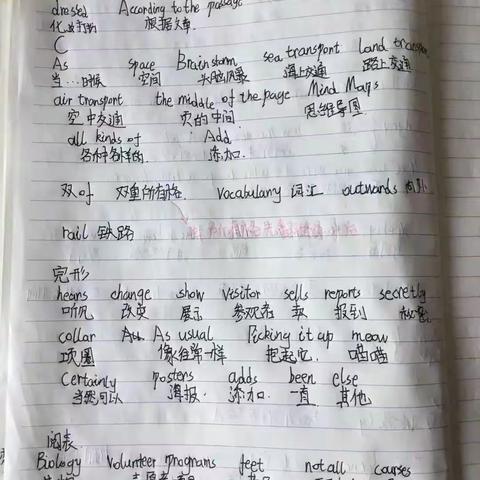 dressed According to the passage
化妆打扮 根据文章
C
As space Brainstorm sea transport land transport
当...时候 空间 头脑风暴 海上交通 路上交通
air transport the middle of the page Mind Maps
空中交通 页的中间 思维导图
all kinds of Add
各种各样的 添加
双of 双重所有格 Vocabulary 词汇 outwards 向外
rail 铁路
完形
hears change show visitor sells reports secretly
听见 改变 展示 参观者 卖 报到
collar As usual Picking it up meow
项圈 像往常一样 把起它 喵喵
Certainly posters adds been else
当然可以 海报 添加 一直 其他
阅表
Biology Volunteer programs feet not all courses